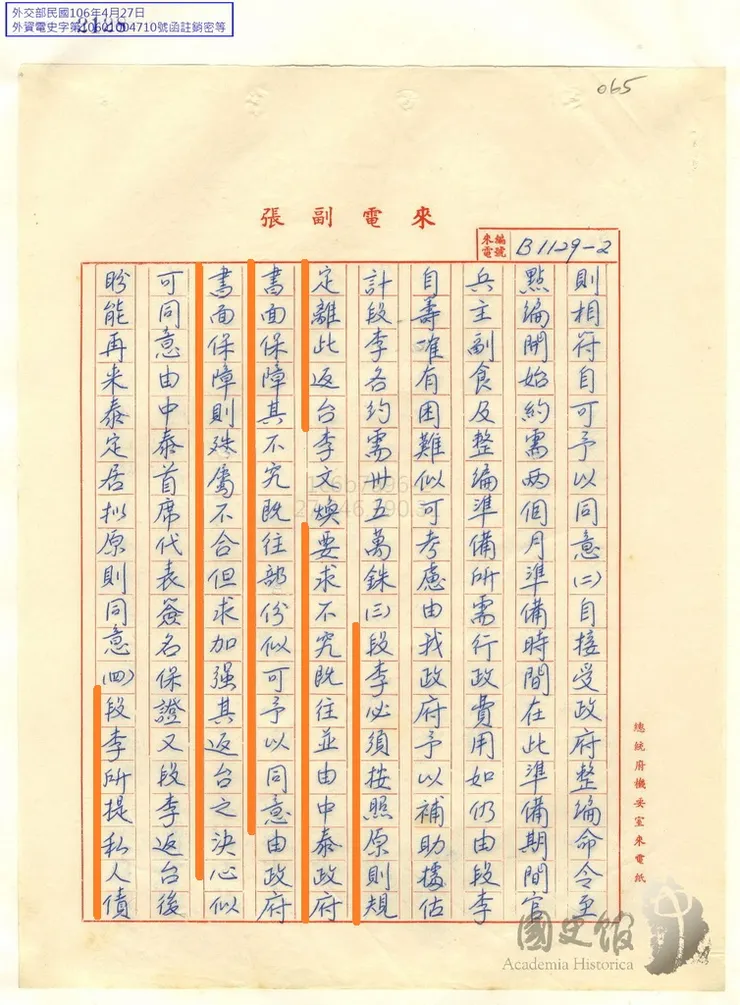 外交部民國106年4月27日
外資電史字第10601004710號函註銷密等
065
張副電來
來電編號
B1129-2
則相符自可予以同意(二)自接受政府整編命令至
點編開始約需兩個月準備時間在此準備期間官
兵主副食及整編準備所需行政費用如仍由段李
自籌確有困難似可考慮由我政府予以補助據估
計段李各約需卅五萬銖(三)段李必須按照原則規
定離此返台李文煥要求不究既往並由中泰政府
書面保障其不究既往部份似可予以同意由政府
書面保障則殊屬不合但求加强其返台之決心似
可同意由中泰首席代表簽名保證又段李返台後
盼能再來泰定居擬原則同意(四)段李所提私人債
總統府機要室來電紙
國史館
Academia Historica